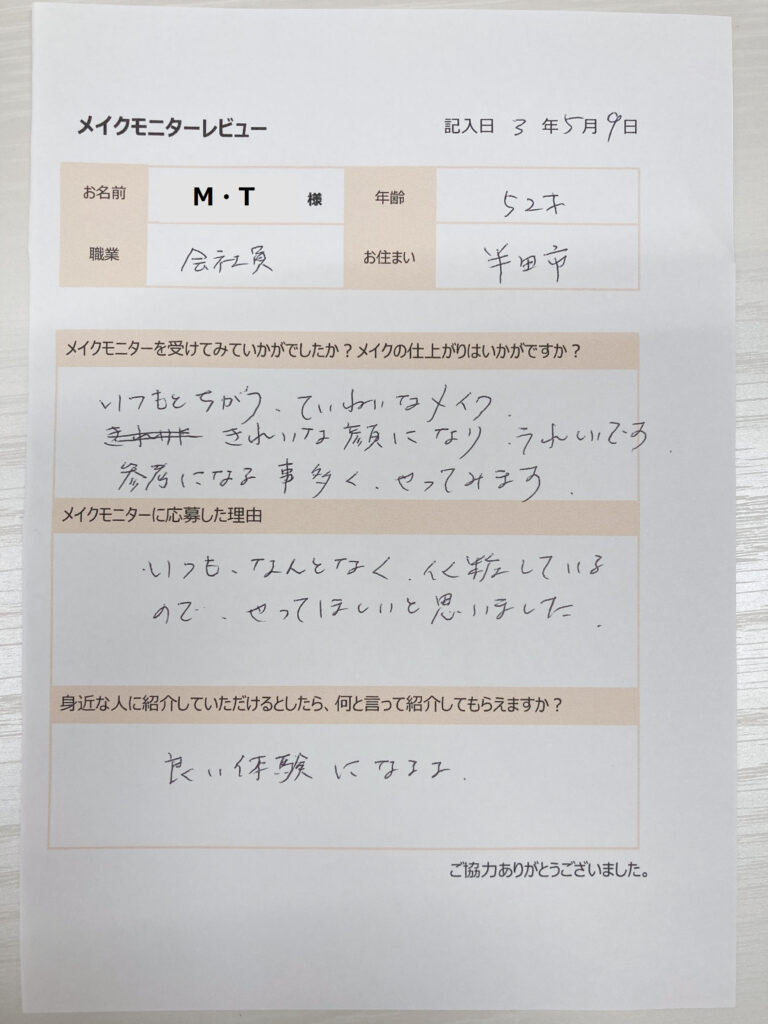 メイクモニターレビュー
記入日 3 年 5月 9日
お名前 M・T 様 年齢 52才
職業 会社員 お住まい 半田市
メイクモニターを受けてみていかがでしたか？メイクの仕上がりはいかがですか？
いつもとちがう、ていねいなメイク、
きれいな顔になり、うれしいです、
参考になる事多く、やってみます、
メイクモニターに応募した理由
いつも、なんとなく、化粧している
ので、やってほしいと思いました、
身近な人に紹介していただけるとしたら、何と言って紹介してもらえますか？
良い体験になるよ、
ご協力ありがとうございました。